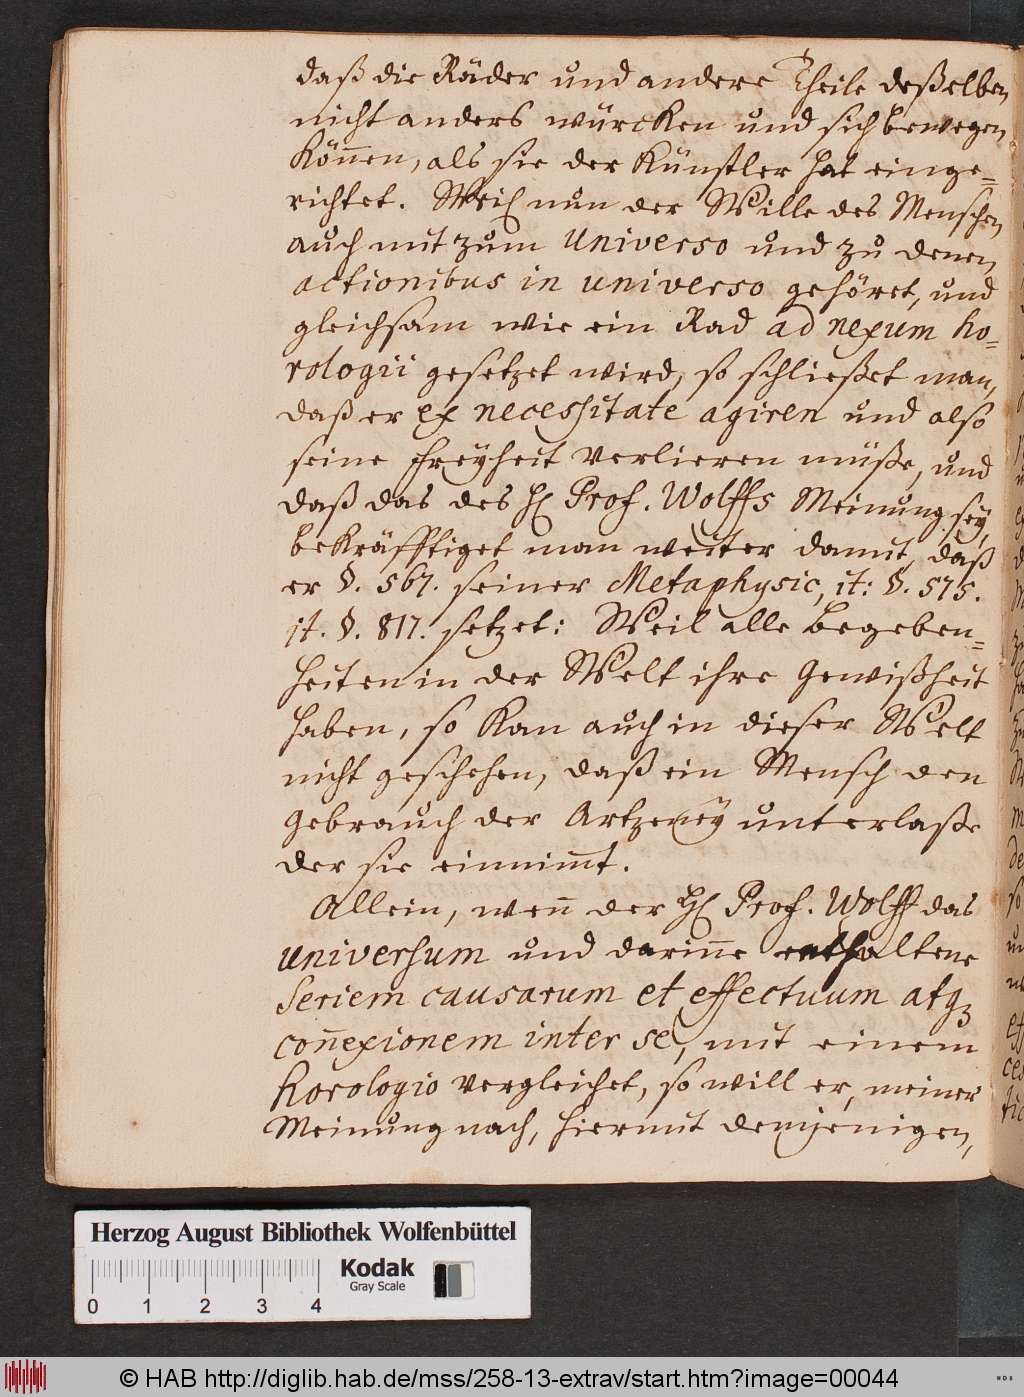 daß die Räder und andere Theile deßelben
nicht anders würcken und sich bewegen
können, als sie der Künstler hat einge=
richtet. Weil nun der Wille des Menschen
auch mit zum Universo und zu denen
actionibus in universo gehöret, und
gleichsam wie ein Rad ad nexum ho=
rologii gesetzet wird, so schließet man,
daß er ex necessitate agiren und also
seine Freyheit verlieren müße, und
daß das des H Prof. Wolffs Meinung sey,
bekräfftiget man weiter damit, daß
er §. 567. seiner Metaphysic, it: §. 575.
it. §. 817. setzet: Weil alle Begeben=
heiten in der Welt ihre Gewißheit
haben, so kan auch in dieser Welt
nicht geschehen, daß ein Mensch den
Gebrauch der Artzeney unterlaße
der sie einnim̄t.
Allein, wen̄ der H Prof. Wolff das
universum und darin̄e enthaltene
Seriem causarum et effectuum atqꝫ
con̄exionem inter se, mit einem
horologio vergleichet, so will er, meiner
Meinung nach, hiermit demjenigen,
Herzog August Bibliothek Wolfenbüttel
Kodak
Gray Scale
0 1 2 3 4
© HAB http://diglib.hab.de/mss/258-13-extrav/start.htm?image=00044